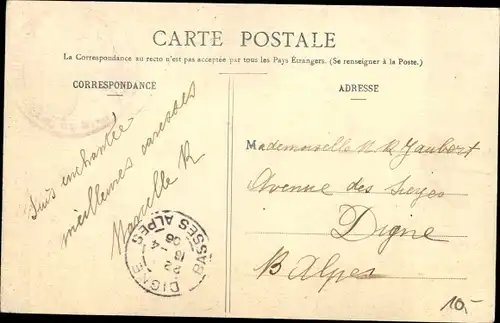 CARTE POSTALE
La Correspondance au recto n'est pas acceptée par tous les Pays Étrangers. (Se renseigner à la Poste.)
CORRESPONDANCE
ADRESSE
Suis enchantée
meilleures caresses
Marcelle R
Mademoiselle M Jaubert
Avenue des Sieyes
Digne
B Alpes
DIGNE
BASSES ALPES
22
4
06
10,-